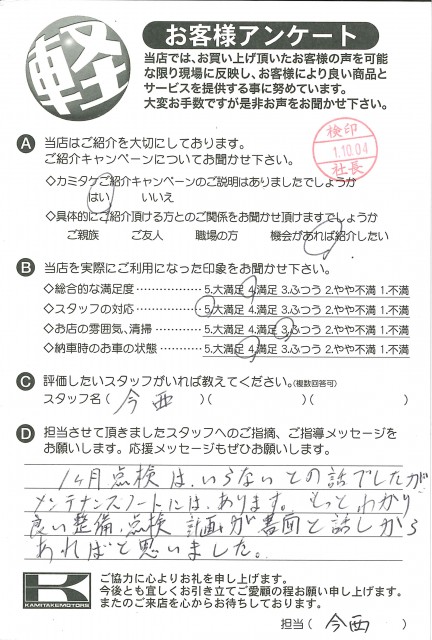 軽
お客様アンケート
当店では、お買い上げ頂いたお客様の声を可能
な限り現場に反映し、お客様により良い商品と
サービスを提供する事に努めています。
大変お手数ですが是非お声をお聞かせ下さい。
検印
1.10.04
社長
A 当店はご紹介を大切にしております。
ご紹介キャンペーンについてお聞かせ下さい。
◇カミタケご紹介キャンペーンのご説明はありましたでしょうか
はい いいえ
◇具体的にご紹介頂ける方とのご関係をお聞かせ頂けますでしょうか
ご親族 ご友人 職場の方 機会があれば紹介したい
B 当店を実際にご利用になった印象をお聞かせ下さい。
◇総合的な満足度 5.大満足 4.満足 3.ふつう 2.やや不満 1.不満
◇スタッフの対応 5.大満足 4.満足 3.ふつう 2.やや不満 1.不満
◇お店の雰囲気、清掃 5.大満足 4.満足 3.ふつう 2.やや不満 1.不満
◇納車時のお車の状態 5.大満足 4.満足 3.ふつう 2.やや不満 1.不満
C 評価したいスタッフがいれば教えてください。(複数回答可)
スタッフ名 ( 今西 )( )( )
D 担当させて頂きましたスタッフへのご指摘、ご指導メッセージを
お願いします。応援メッセージもぜひお願いします。
1ヶ月点検は、いらないとの話でしたが
メンテナンスノートには、あります。もっとわかり
良い整備、点検 計画が書面と話しから
あればと思いました。
K
KAMITAKEMOTORS
ご協力に心よりお礼を申し上げます。
今後とも宜しくお引き立てご愛顧の程お願い申し上げます。
またのご来店を心からお待ちしております。
担当 ( 今西 )